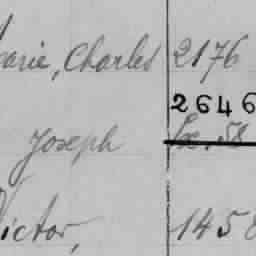 Marie, Charles 2176
2646
Joseph
Victor, 145